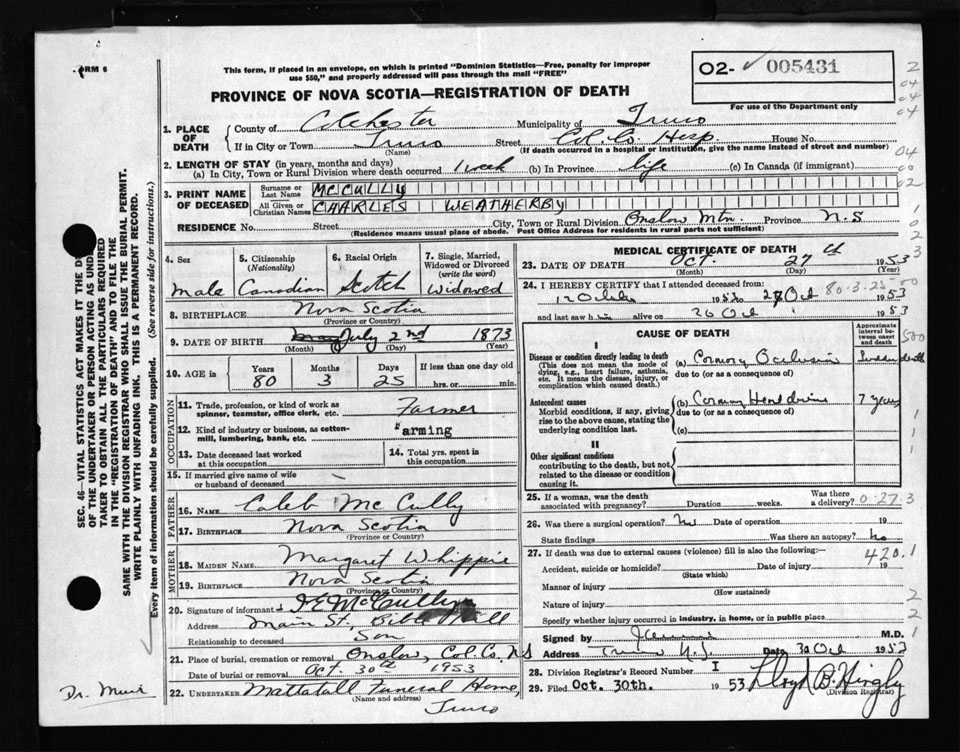 FORM 6
This form, if placed in an envelope, on which is printed "Dominion Statistics—Free, penalty for improper
use $50," and properly addressed will pass through the mail "FREE"
PROVINCE OF NOVA SCOTIA—REGISTRATION OF DEATH
O2- 005431
For use of the Department only
1. PLACE OF DEATH
County of Colchester Municipality of Truro
If in City or Town Truro Street Col. Co. Hosp. House No.
(Name) (If death occurred in a hospital or institution, give the name instead of street and number)
2. LENGTH OF STAY (in years, months and days)
(a) In City, Town or Rural Division where death occurred 1 week (b) In Province life (c) In Canada (if immigrant)
3. PRINT NAME OF DECEASED
Surname or Last Name MCCULLY
All Given or Christian Names CHARLES WEATHERBY
RESIDENCE No. Street City, Town or Rural Division Onslow Mtn. Province N.S
(Residence means usual place of abode. Post Office Address for residents in rural parts not sufficient)
4. Sex Male
5. Citizenship (Nationality) Canadian
6. Racial Origin Scotch
7. Single, Married, Widowed or Divorced (write the word) Widowed
8. BIRTHPLACE Nova Scotia
(Province or Country)
9. DATE OF BIRTH May July 2nd 1873
(Month) (Day) (Year)
10. AGE in Years 80 Months 3 Days 25 If less than one day hrs. or min.
OCCUPATION
11. Trade, profession, or kind of work as spinner, teamster, office clerk, etc. Farmer
12. Kind of industry or business, as cotton-mill, lumbering, bank, etc. Farming
13. Date deceased last worked at this occupation
14. Total yrs. spent in this occupation
15. If married give name of wife or husband of deceased
FATHER
16. NAME Caleb McCully
17. BIRTHPLACE Nova Scotia
(Province or Country)
MOTHER
18. MAIDEN NAME Margaret Whippie
19. BIRTHPLACE Nova Scotia
(Province or Country)
20. Signature of informant McCully
Address Main St., Bible Hill
Relationship to deceased Son
21. Place of burial, cremation or removal Onslow, Col. Co. NS
Date of burial or removal Oct. 30th 1953
22. UNDERTAKER Mattatall Funeral Home,
(Name and address)
Truro
MEDICAL CERTIFICATE OF DEATH
23. DATE OF DEATH Oct. 27th 1953
(Month) (Day) (Year)
24. I HEREBY CERTIFY that I attended deceased from:
1952 to 27 Oct 1953
80-3-25-00
and last saw him alive on 26 Oct 1953
CAUSE OF DEATH
Approximate interval between onset and death
I
Disease or condition directly leading to death
(This does not mean the mode of dying, e.g., heart failure, asthenia, etc. It means the disease, injury, or complication which caused death.)
(a) Coronary Occlusion Sudden death
due to (or as a consequence of)
Antecedent causes
Morbid conditions, if any, giving rise to the above cause, stating the underlying condition last.
(b) Coronary 7 years
due to (or as a consequence of)
(c)
II
Other significant conditions
contributing to the death, but not related to the disease or condition causing it.
25. If a woman, was the death associated with pregnancy? Duration weeks. Was there a delivery?
0-27.3
26. Was there a surgical operation? no Date of operation 19
State findings Was there an autopsy? no
27. If death was due to external causes (violence) fill in also the following:—
420.1
Accident, suicide or homicide? Date of injury 19
(State which)
Manner of injury
(How sustained)
Nature of injury
Specify whether injury occurred in industry, in home, or in public place
Signed by M.D.
Address Truro N.S. Date 30 Oct 1953
28. Division Registrar's Record Number I
29. Filed Oct. 30th. 1953 Lloyd B. Hingly
(Division Registrar)
SEC. 46—VITAL STATISTICS ACT MAKES IT THE DUTY
OF THE UNDERTAKER OR PERSON ACTING AS UNDER
TAKER TO OBTAIN ALL THE PARTICULARS REQUIRED
IN THE "REGISTRATION OF DEATH" AND TO FILE THE
SAME WITH THE DIVISION REGISTRAR WHO SHALL ISSUE THE BURIAL PERMIT.
WRITE PLAINLY WITH UNFADING INK. THIS IS A PERMANENT RECORD.
Every item of information should be carefully supplied. (See reverse side for instructions.)
Dr. Muir